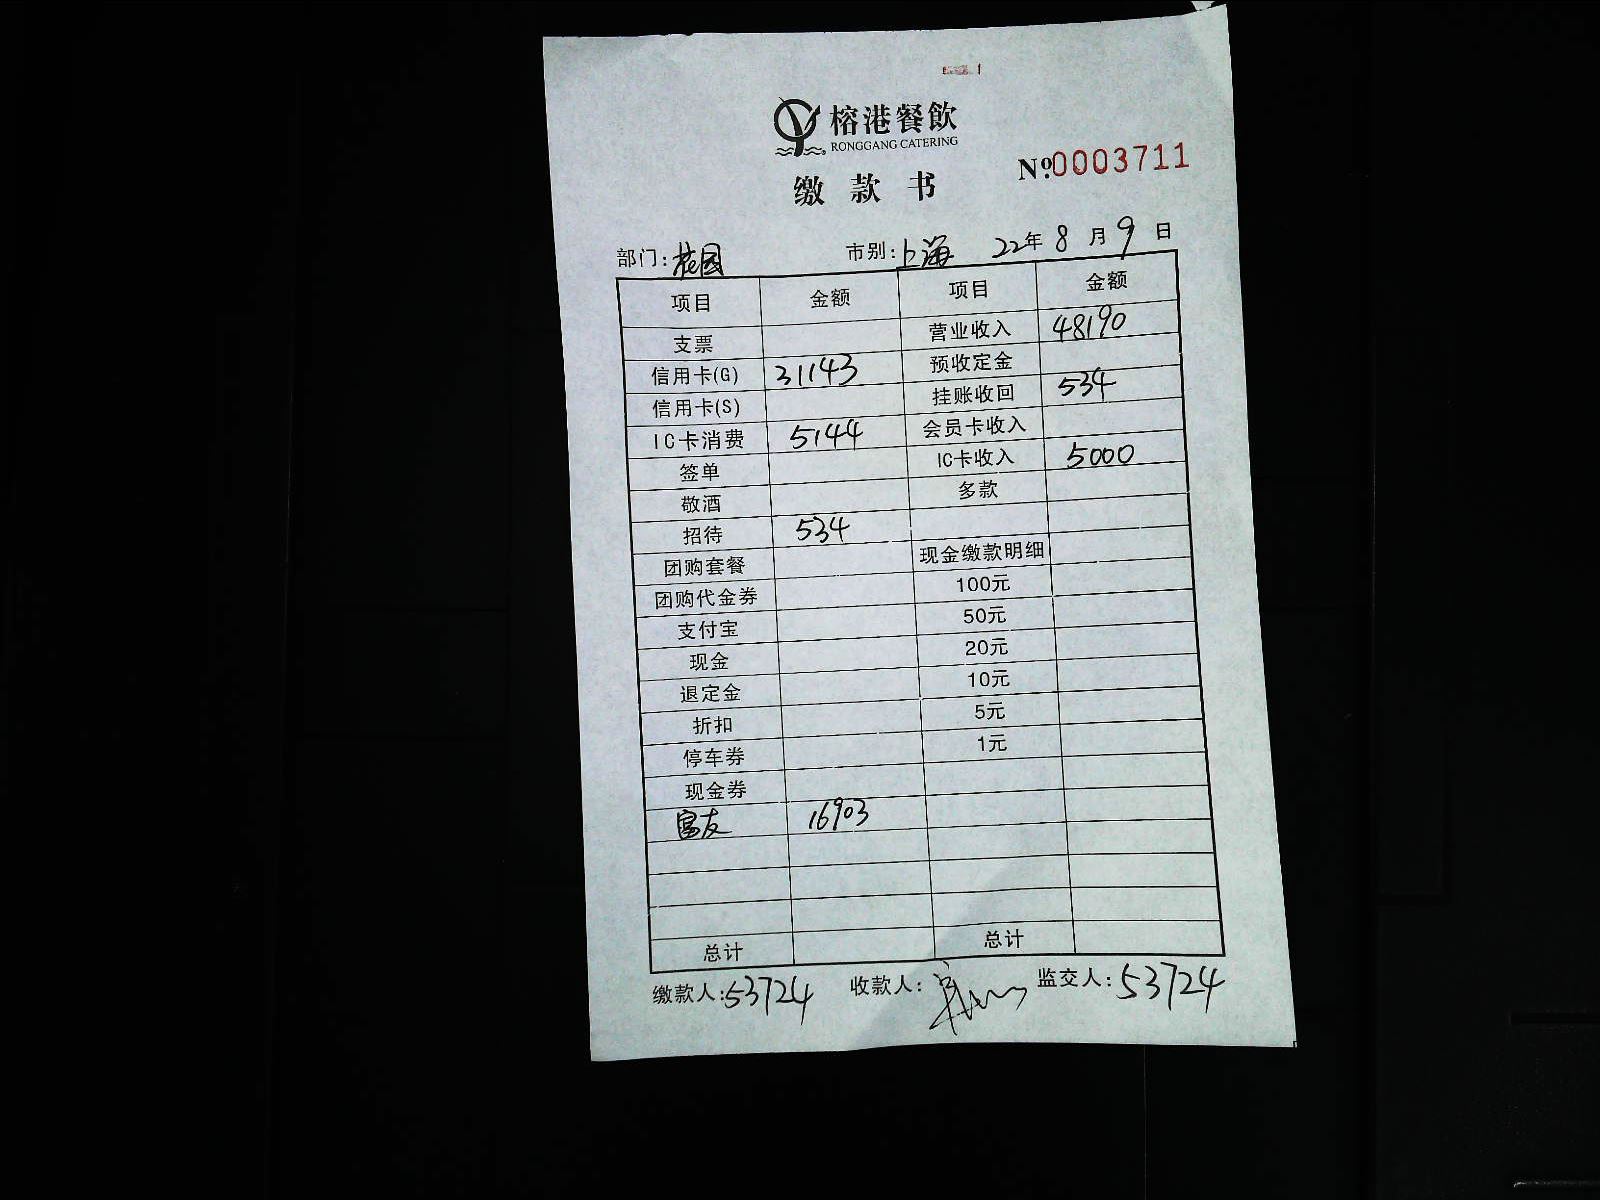 榕港餐飲
RONGGANG CATERING
缴款书
№0003711
部门:花园 市别:上海 22年8月9日
项目 金额 项目 金额
支票 营业收入 48190
信用卡(G) 31143 预收定金
信用卡(S) 挂账收回 534
IC卡消费 5144 会员卡收入
签单 IC卡收入 5000
敬酒 多款
招待 534
团购套餐 现金缴款明细
团购代金券 100元
支付宝 50元
现金 20元
退定金 10元
折扣 5元
停车券 1元
现金券
富友 16903
总计 总计
缴款人:53724 收款人: 监交人:53724